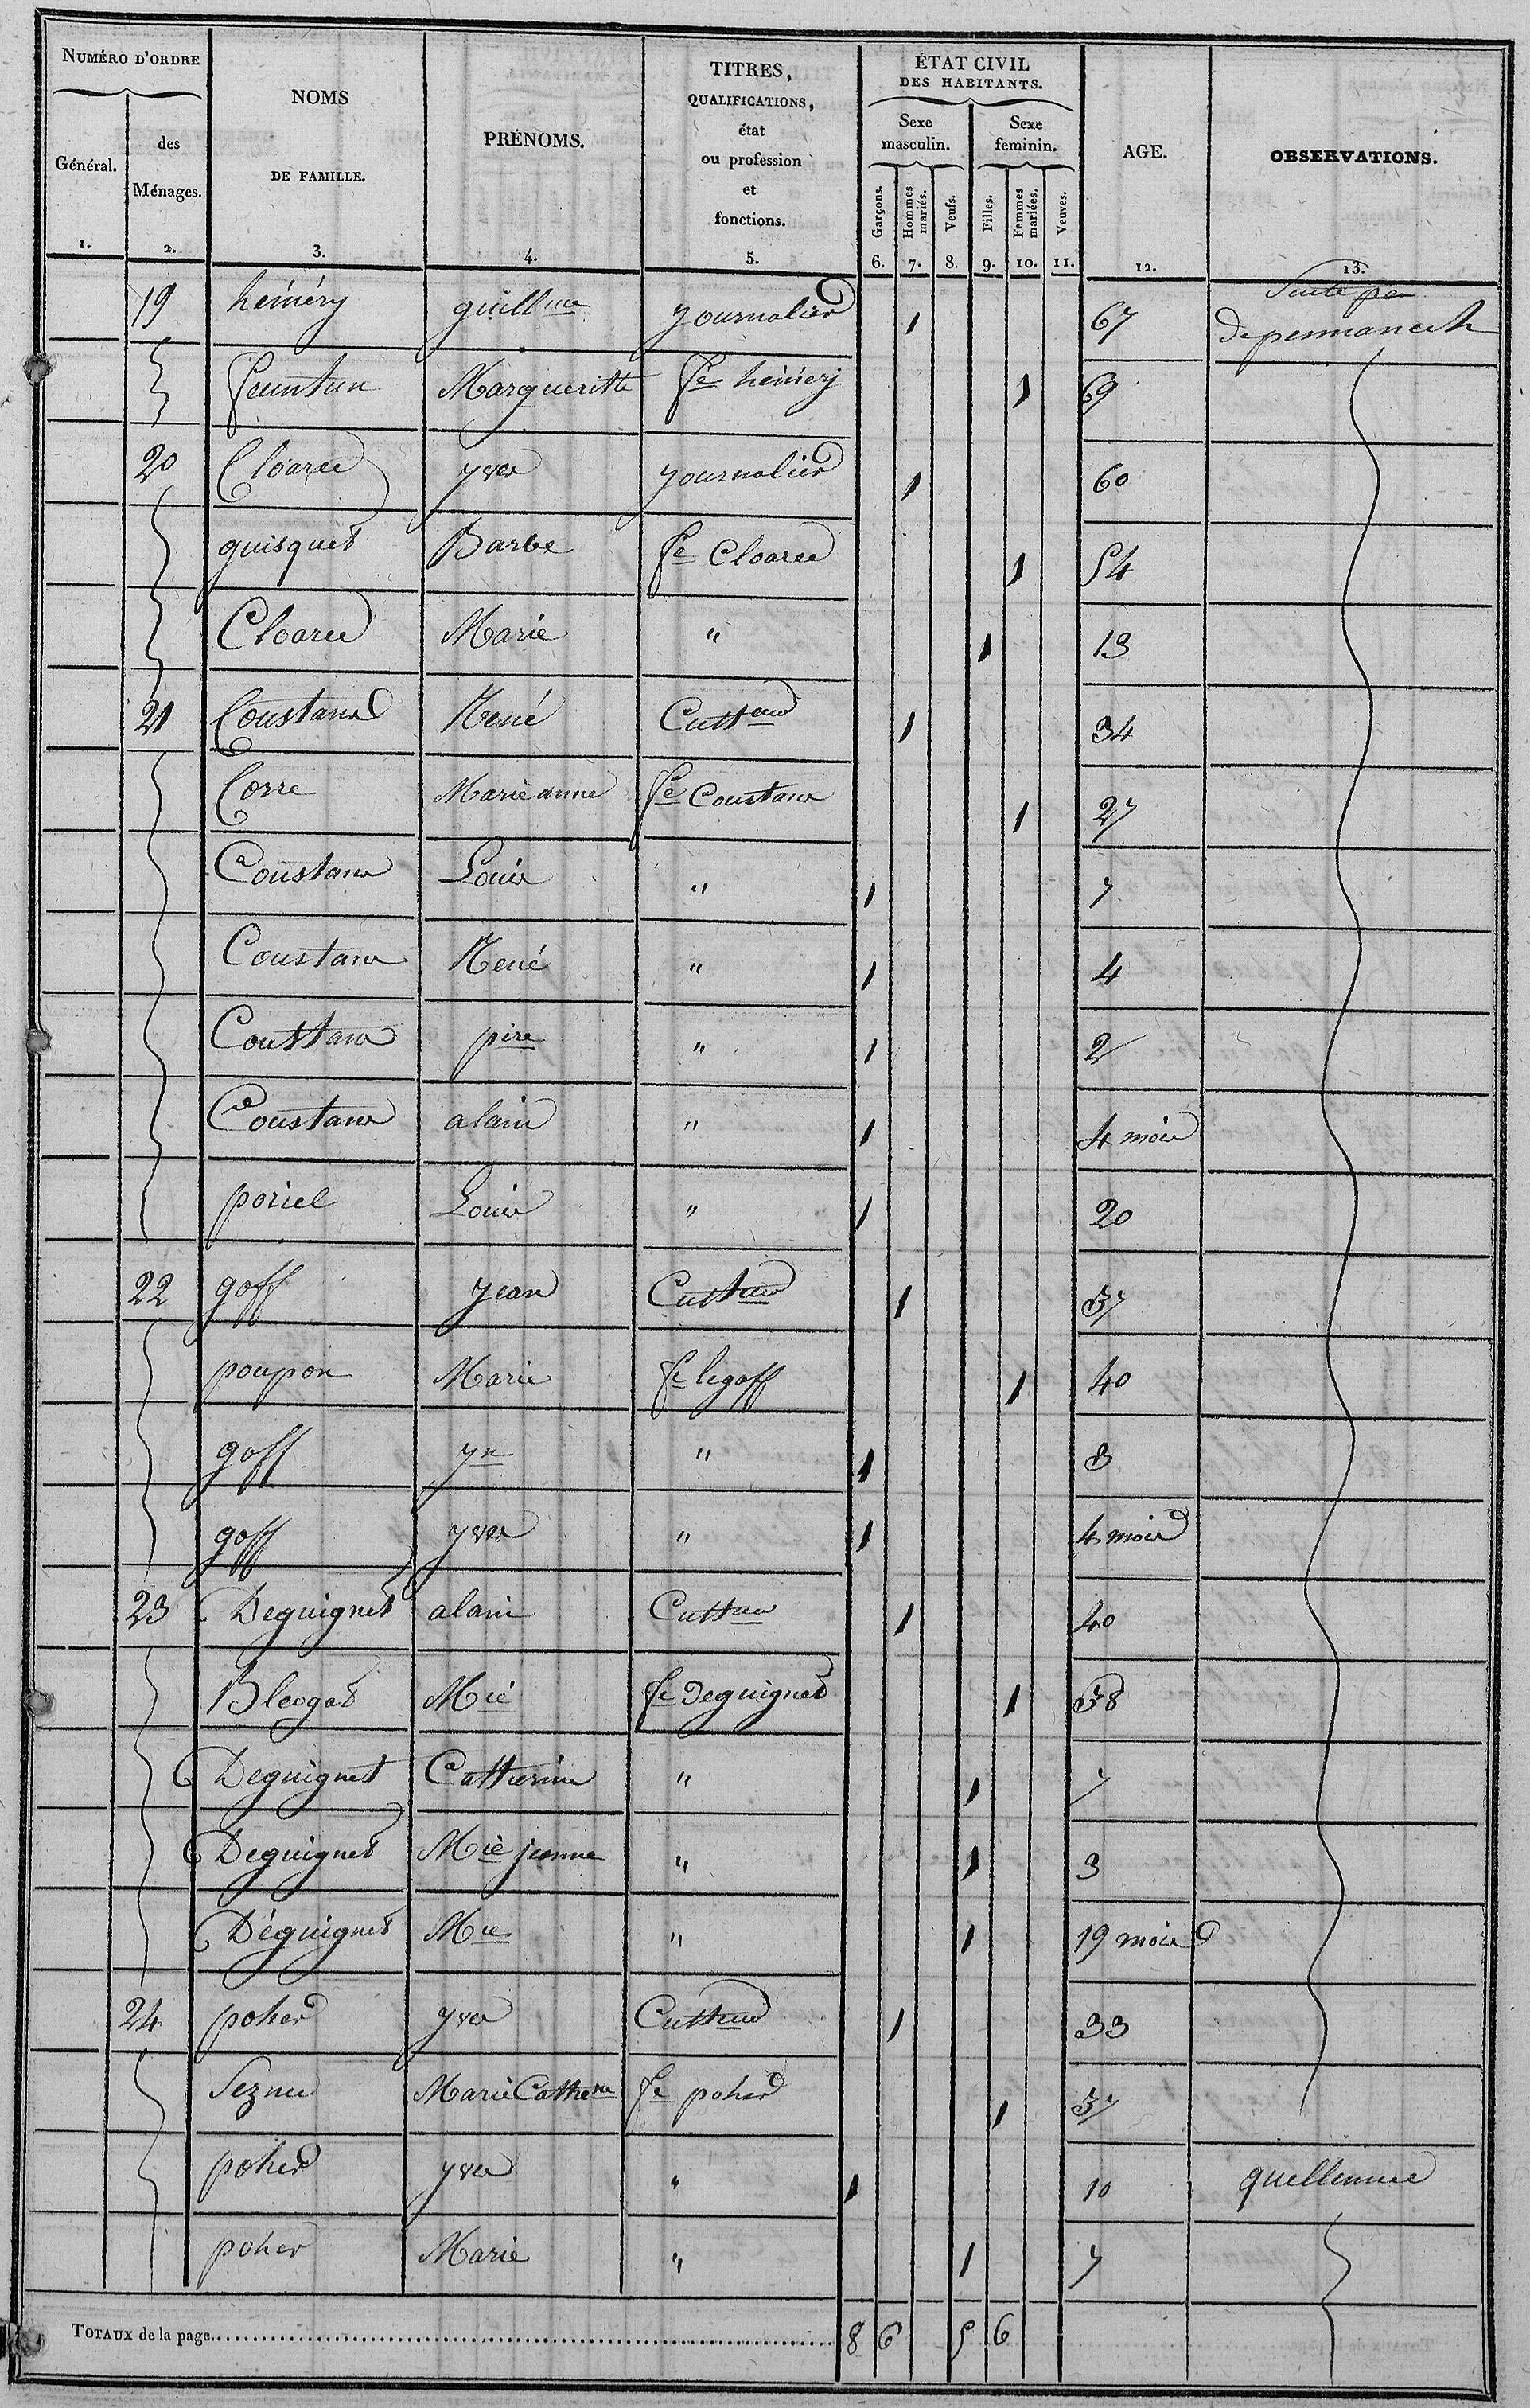 NUMÉRO D'ORDRE
Général.
1.
des
Ménages.
2.
NOMS
DE FAMILLE.
3.
PRÉNOMS.
4.
TITRES,
QUALIFICATIONS,
état
ou profession
et
fonctions.
5.
ÉTAT CIVIL
DES HABITANTS.
Sexe
masculin.
Sexe
feminin.
Garçons.
Hommes
mariés.
Veufs.
Filles.
Femmes
mariées.
Veuves.
6. 7. 8. 9. 10. 11.
AGE.
12.
OBSERVATIONS.
13.
Suite
19 héméry guillme journalier 1 67
feuntun Margueritte fe héméry 1 69
20 Cloarec yves journalier 1 60
guisquet Barbe fe Cloarec 1 54
Cloarec Marie " 1 13
21 Coustans René Culteur 1 34
Corre Marie anne fe Coustans 1 27
Coustans Louis " 1 7
Coustans René " 1 4
Coustans pire " 1 2
Coustans alain " 1 4 mois
poriel Louis " 1 20
22 goff jean Cultur 1 37
poupon Marie fe legoff 1 40
goff yn " 1 8
goff yves " 1 4 mois
23 Deguignet alain Cultur 1 40
Bleogat Mie fe Deguignet 1 38
Deguignet Catherine " 1 7
Deguignet Mie jeanne " 1 3
Déguignet Mie " 1 19 mois
24 poher yves Cultur 1 33
Seznec Marie Catherne fe poher 1 37
poher yves " 1 10 quellennec
poher Marie " 1 7
TOTAUX de la page 8 6 5 6